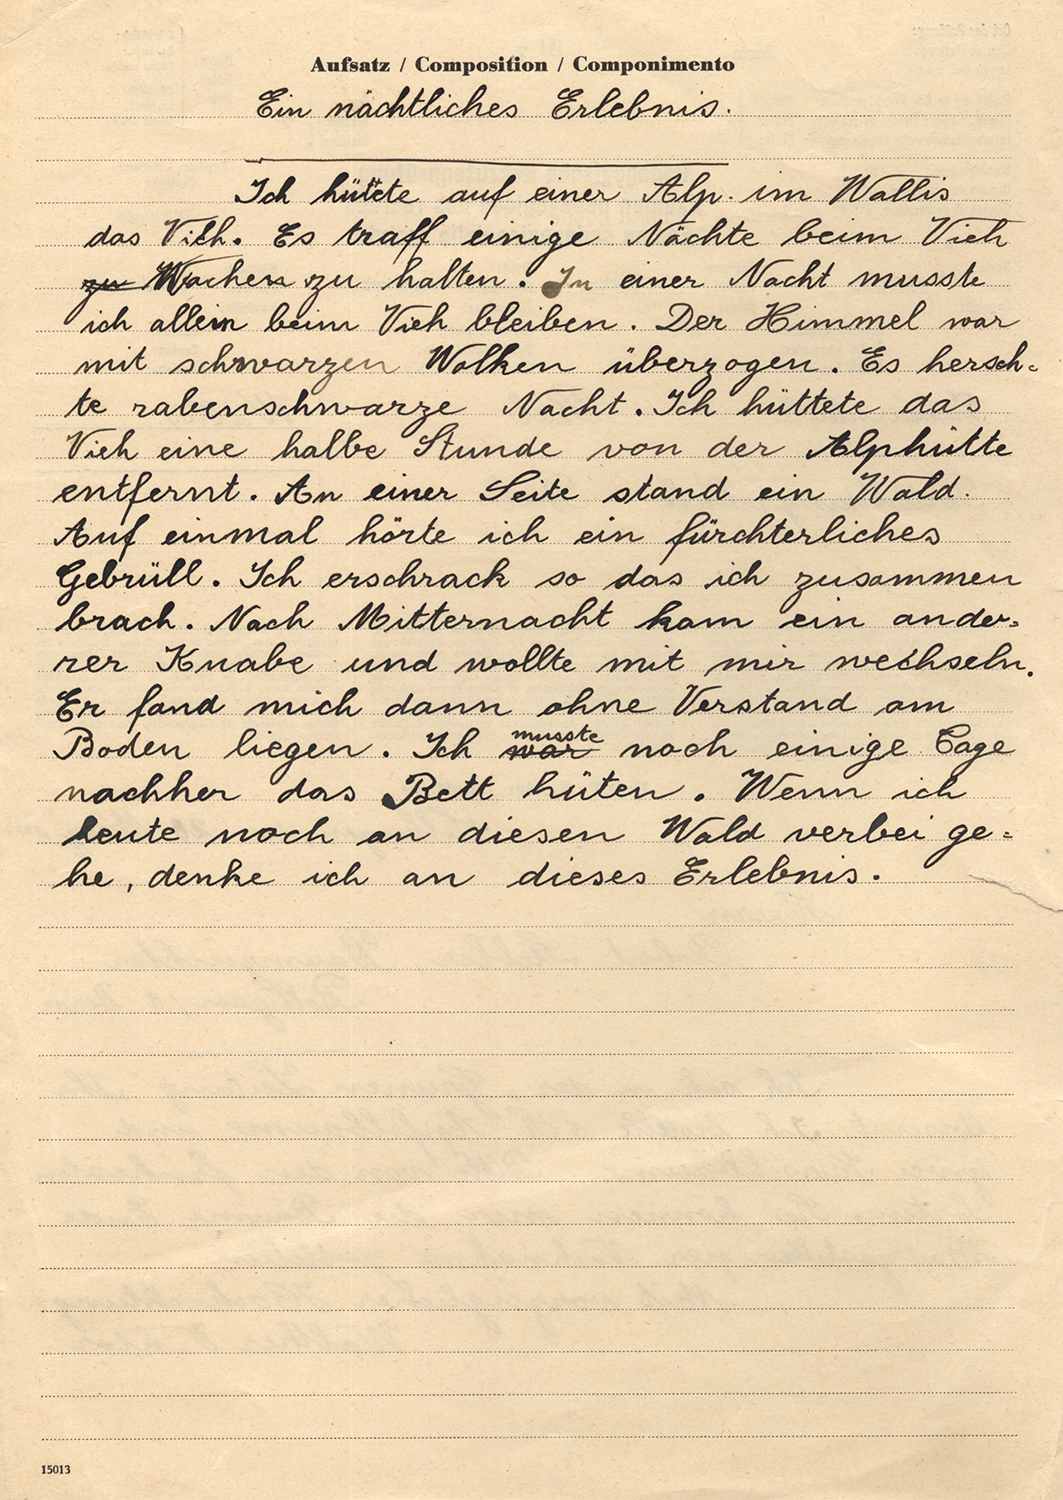 Aufsatz / Composition / Componimento
Ein nächtliches Erlebnis.
Ich hütete auf einer Alp im Wallis
das Vieh. Es traff einige Nächte beim Vieh
zu Wachen zu halten. In einer Nacht musste
ich allein beim Vieh bleiben. Der Himmel war
mit schwarzen Wolken überzogen. Es hersch-
te rabenschwarze Nacht. Ich hüttete das
Vieh eine halbe Stunde von der Alphütte
entfernt. An einer Seite stand ein Wald.
Auf einmal hörte ich ein fürchterliches
Gebrüll. Ich erschrack so das ich zusammen
brach. Nach Mitternacht kam ein ande-
rer Knabe und wollte mit mir wechseln.
Er fand mich dann ohne Verstand am
Boden liegen. Ich war musste noch einige Tage
nachher das Bett hüten. Wenn ich
heute noch an diesen Wald verbei ge-
he, denke ich an dieses Erlebnis.
15013